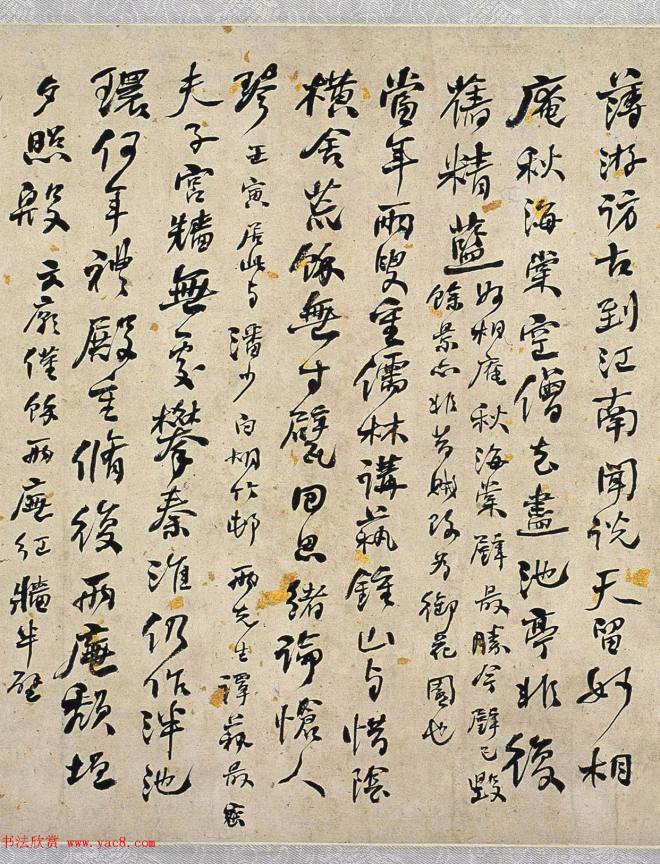 薄游訪古到江南聞說天留妙相
庵秋海棠空僧去盡池亭非復
舊精藍
妙相庵秋海棠壁最勝今壁已毀
餘景亦非昔賊改為御花園也
當年兩叟重儒林講蓺鍾山与惜陰
橫舍荒餘無寸甓回思緒論愴人
琴 壬寅居此与潘少白胡竹邨兩先生譚蓺最密
夫子宮牆無處攀秦淮仍作泮池
環何年禮殿重脩復兩廡頹垣
夕照殷 文廟僅餘兩廡紅牆半壁
书法欣赏 www.yac8.com